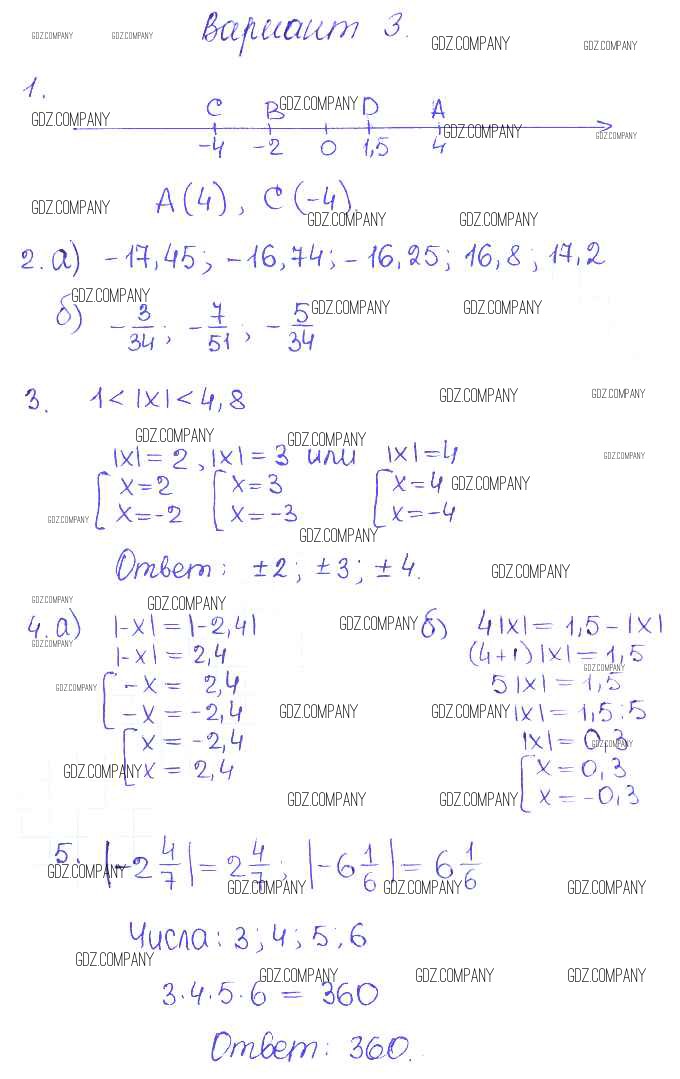 GDZ.COMPANY GDZ.COMPANY Вариант 3. GDZ.COMPANY GDZ.COMPANY
1.
C B GDZ.COMPANY D A
GDZ.COMPANY GDZ.COMPANY GDZ.COMPANY
-4 -2 0 1,5 4
GDZ.COMPANY A(4), C(-4).
GDZ.COMPANY GDZ.COMPANY
2. а) -17,45; -16,74; -16,25; 16,8; 17,2
GDZ.COMPANY
б) -3/34; -7/51; -5/34 GDZ.COMPANY GDZ.COMPANY
3. 1 < |x| < 4,8 GDZ.COMPANY GDZ.COMPANY
GDZ.COMPANY GDZ.COMPANY
|x| = 2, |x| = 3 или |x| = 4 GDZ.COMPANY
[ x = 2 [ x = 3 [ x = 4 GDZ.COMPANY
x = -2 x = -3 x = -4
GDZ.COMPANY GDZ.COMPANY
Ответ: ±2; ±3; ±4. GDZ.COMPANY
GDZ.COMPANY GDZ.COMPANY
4. а) |-x| = |-2,4| GDZ.COMPANY б) 4|x| = 1,5 - |x|
GDZ.COMPANY |-x| = 2,4 (4+1)|x| = 1,5
GDZ.COMPANY
GDZ.COMPANY [ -x = 2,4 5|x| = 1,5
-x = -2,4 GDZ.COMPANY GDZ.COMPANY |x| = 1,5:5
[ x = -2,4 |x| = 0,3 GDZ.COMPANY
GDZ.COMPANY x = 2,4 [ x = 0,3
GDZ.COMPANY GDZ.COMPANY x = -0,3
5. |-2 4/7| = 2 4/7; |-6 1/6| = 6 1/6
GDZ.COMPANY GDZ.COMPANY GDZ.COMPANY GDZ.COMPANY
Числа: 3; 4; 5; 6
GDZ.COMPANY
GDZ.COMPANY GDZ.COMPANY GDZ.COMPANY
3·4·5·6 = 360
Ответ: 360.